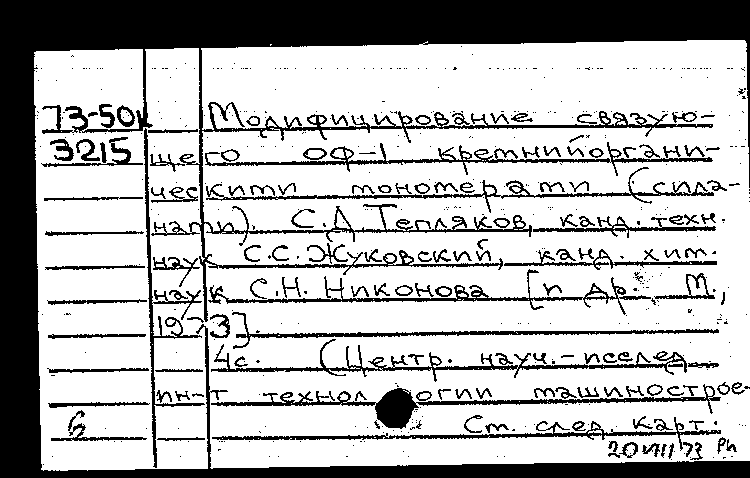 73-50к Модифицирование связую-
3215 щего ОФ-1 кремнийоргани-
ческими мономерами (сила-
нами). С.Д. Тепляков, канд. техн.
наук С.С. Жуковский, канд. хим.
наук С.Н. Никонова [и др. М.,
1973].
4с. (Центр. науч.-исслед
ин-т технологии машинострое-
б См. след. карт.
20 VIII 73 Рн